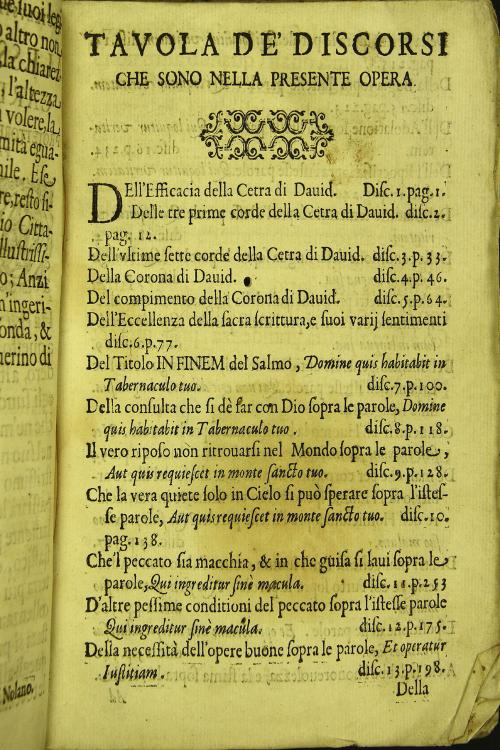 ue suoi leg
o altro non
la chiarez
l'altezza
volere, la
mità egua-
nile. E se
re, resto si-
io Citta-
llustriss-
o; Anzi
n'ingeri-
onda, &
nerino di
Nolano.
TAVOLA DE' DISCORSI
CHE SONO NELLA PRESENTE OPERA.
DEll'Efficacia della Cetra di Dauid. Disc.1.pag.1.
Delle tre prime corde della Cetra di Dauid. disc.2.
pag. 12.
Dell'vltime sette corde della Cetra di Dauid. disc.3.p.33.
Della Corona di Dauid. disc.4.p. 46.
Del compimento della Corona di Dauid. disc.5.p.64.
Dell'Eccellenza della sacra scrittura,e suoi varij sentimenti
disc.6.p.77.
Del Titolo IN FINEM del Salmo, Domine quis habitabit in
Tabernaculo tuo. disc.7.p.100.
Della consulta che si dè far con Dio sopra le parole, Domine
quis habitabit in Tabernaculo tuo. disc.8.p.118.
Il vero riposo non ritrouarsi nel Mondo sopra le parole,
Aut quis requiescet in monte sancto tuo. disc.9.p.128.
Che la vera quiete solo in Cielo si può sperare sopra l'istes-
se parole, Aut quis requiescet in monte sancto tuo. disc.10.
pag.138.
Che'l peccato sia macchia, & in che guisa si laui sopra le
parole,Qui ingreditur sinè macula. disc.11.p.253
D'altre pessime conditioni del peccato sopra l'istesse parole
Qui ingreditur sinè macula. disc.12.p.175.
Della necessità dell'opere buone sopra le parole, Et operatur
Iustitiam. disc.13.p.198.
Della